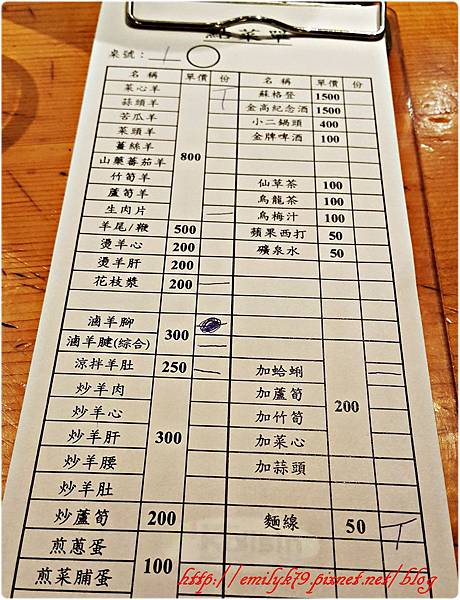 點菜單
桌號：
名稱 單價 份
菜心羊
蒜頭羊
苦瓜羊
菜頭羊
薑絲羊
山藥蕃茄羊
竹筍羊
蘆筍羊
生肉片
800
羊尾/鞭 500
燙羊心 200
燙羊肝 200
花枝漿 200
滷羊腳
滷羊腱(綜合)
300
涼拌羊肚 250
炒羊肉
炒羊心
炒羊肝
炒羊腰
炒羊肚
300
炒蘆筍 200
煎蔥蛋
煎菜脯蛋
100
名稱 單價 份
蘇格登 1500
金高紀念酒 1500
小二鍋頭 400
金牌啤酒 100
仙草茶 100
烏龍茶 100
烏梅汁 100
蘋果西打 50
礦泉水 50
加蛤蜊
加蘆筍
加竹筍
加菜心
加蒜頭
200
麵線 50
http://emilyk79.pixnet.net/blog